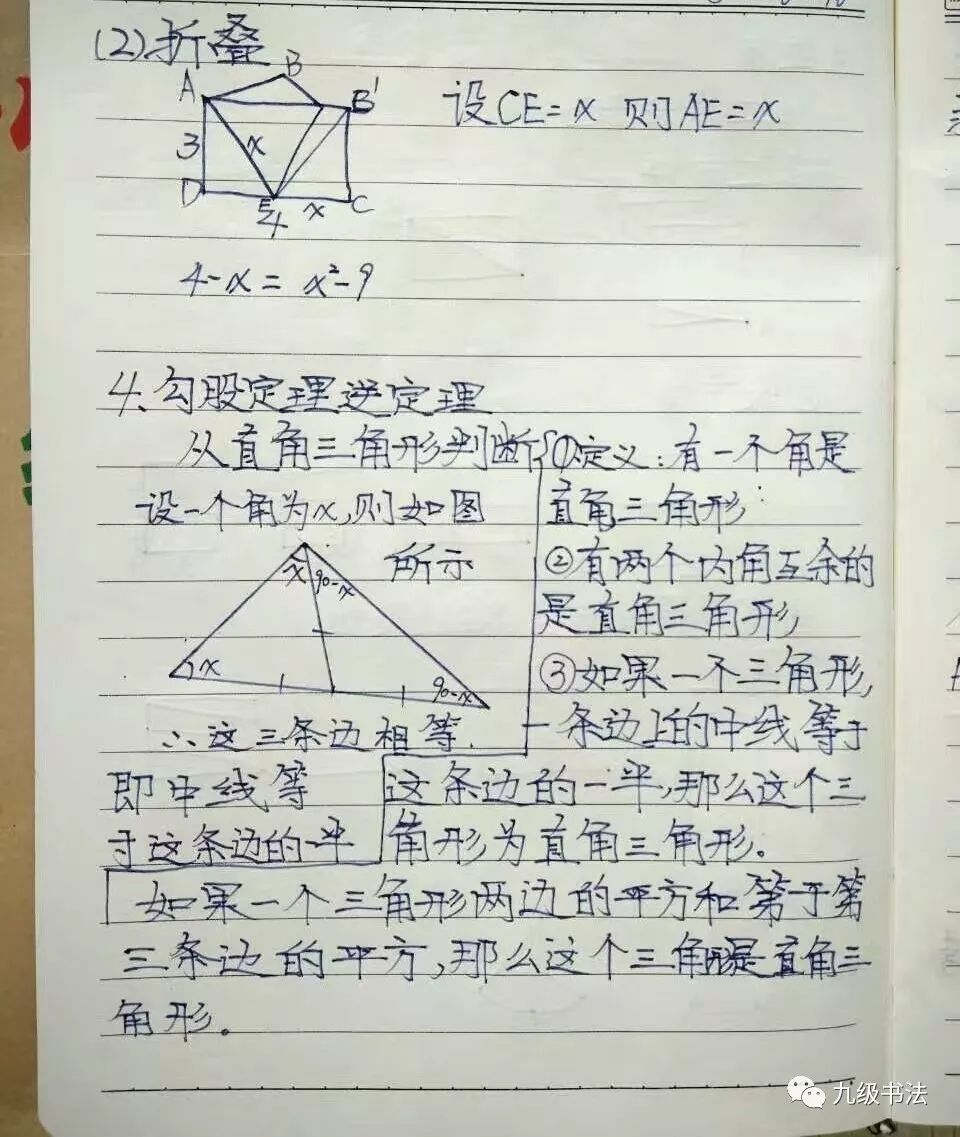 (2)折叠
A B B'
设CE=x 则AE=x
3 x
D E x C
4
4-x = x²-9
4、勾股定理逆定理
从直角三角形判断{①定义:有一个角是
设一个角为x,则如图
直角三角形
所示
②有两个内角互余的
x 90-x
是直角三角形,
x 90-x
③如果一个三角形,
∴这三条边相等.
一条边上的中线等于
即中线等
这条边的一半,那么这个三
于这条边的一半
角形为直角三角形。
如果一个三角形两边的平方和等于第
三条边的平方,那么这个三角形是直角三
角形。
九级书法